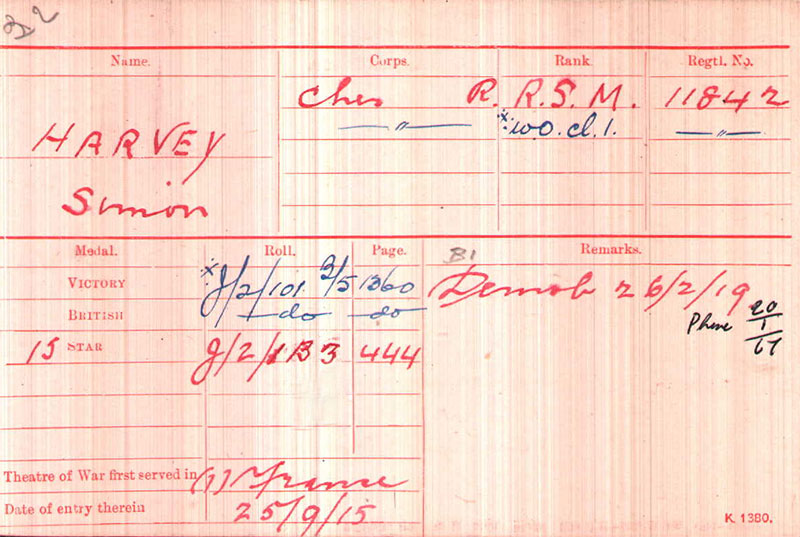 Name. Corps. Rank. Regtl. No.
Ches R. R.S.M. 11842
HARVEY
—〃— * W.O. cl. 1. —〃—
Simon
Medal. Roll. Page. Remarks.
B1
VICTORY * J/2/101 B/5 1360 Demob 26/2/19
BRITISH —do— —do—
Phone 20/1/67
15 STAR J/2/1B3 444
Theatre of War first served in (1) France
Date of entry therein 25/9/15
K 1380.